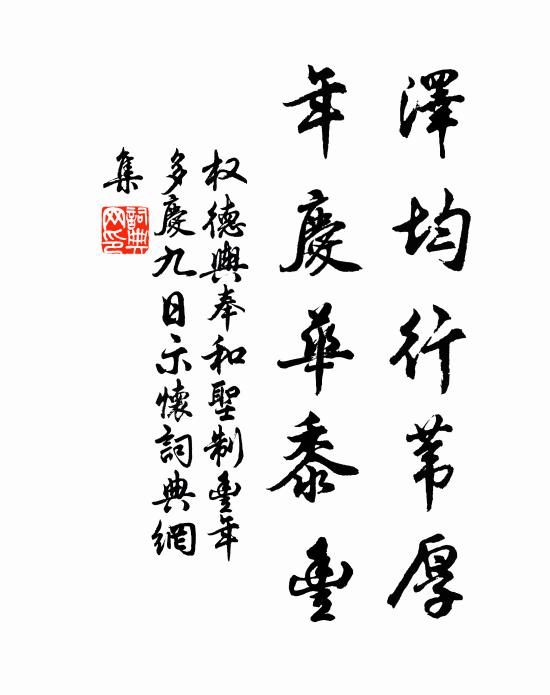 澤均行苇厚
年慶華黍豐
权德輿奉和聖制豐年
多慶九日示懷詞典網
集
詞典网印